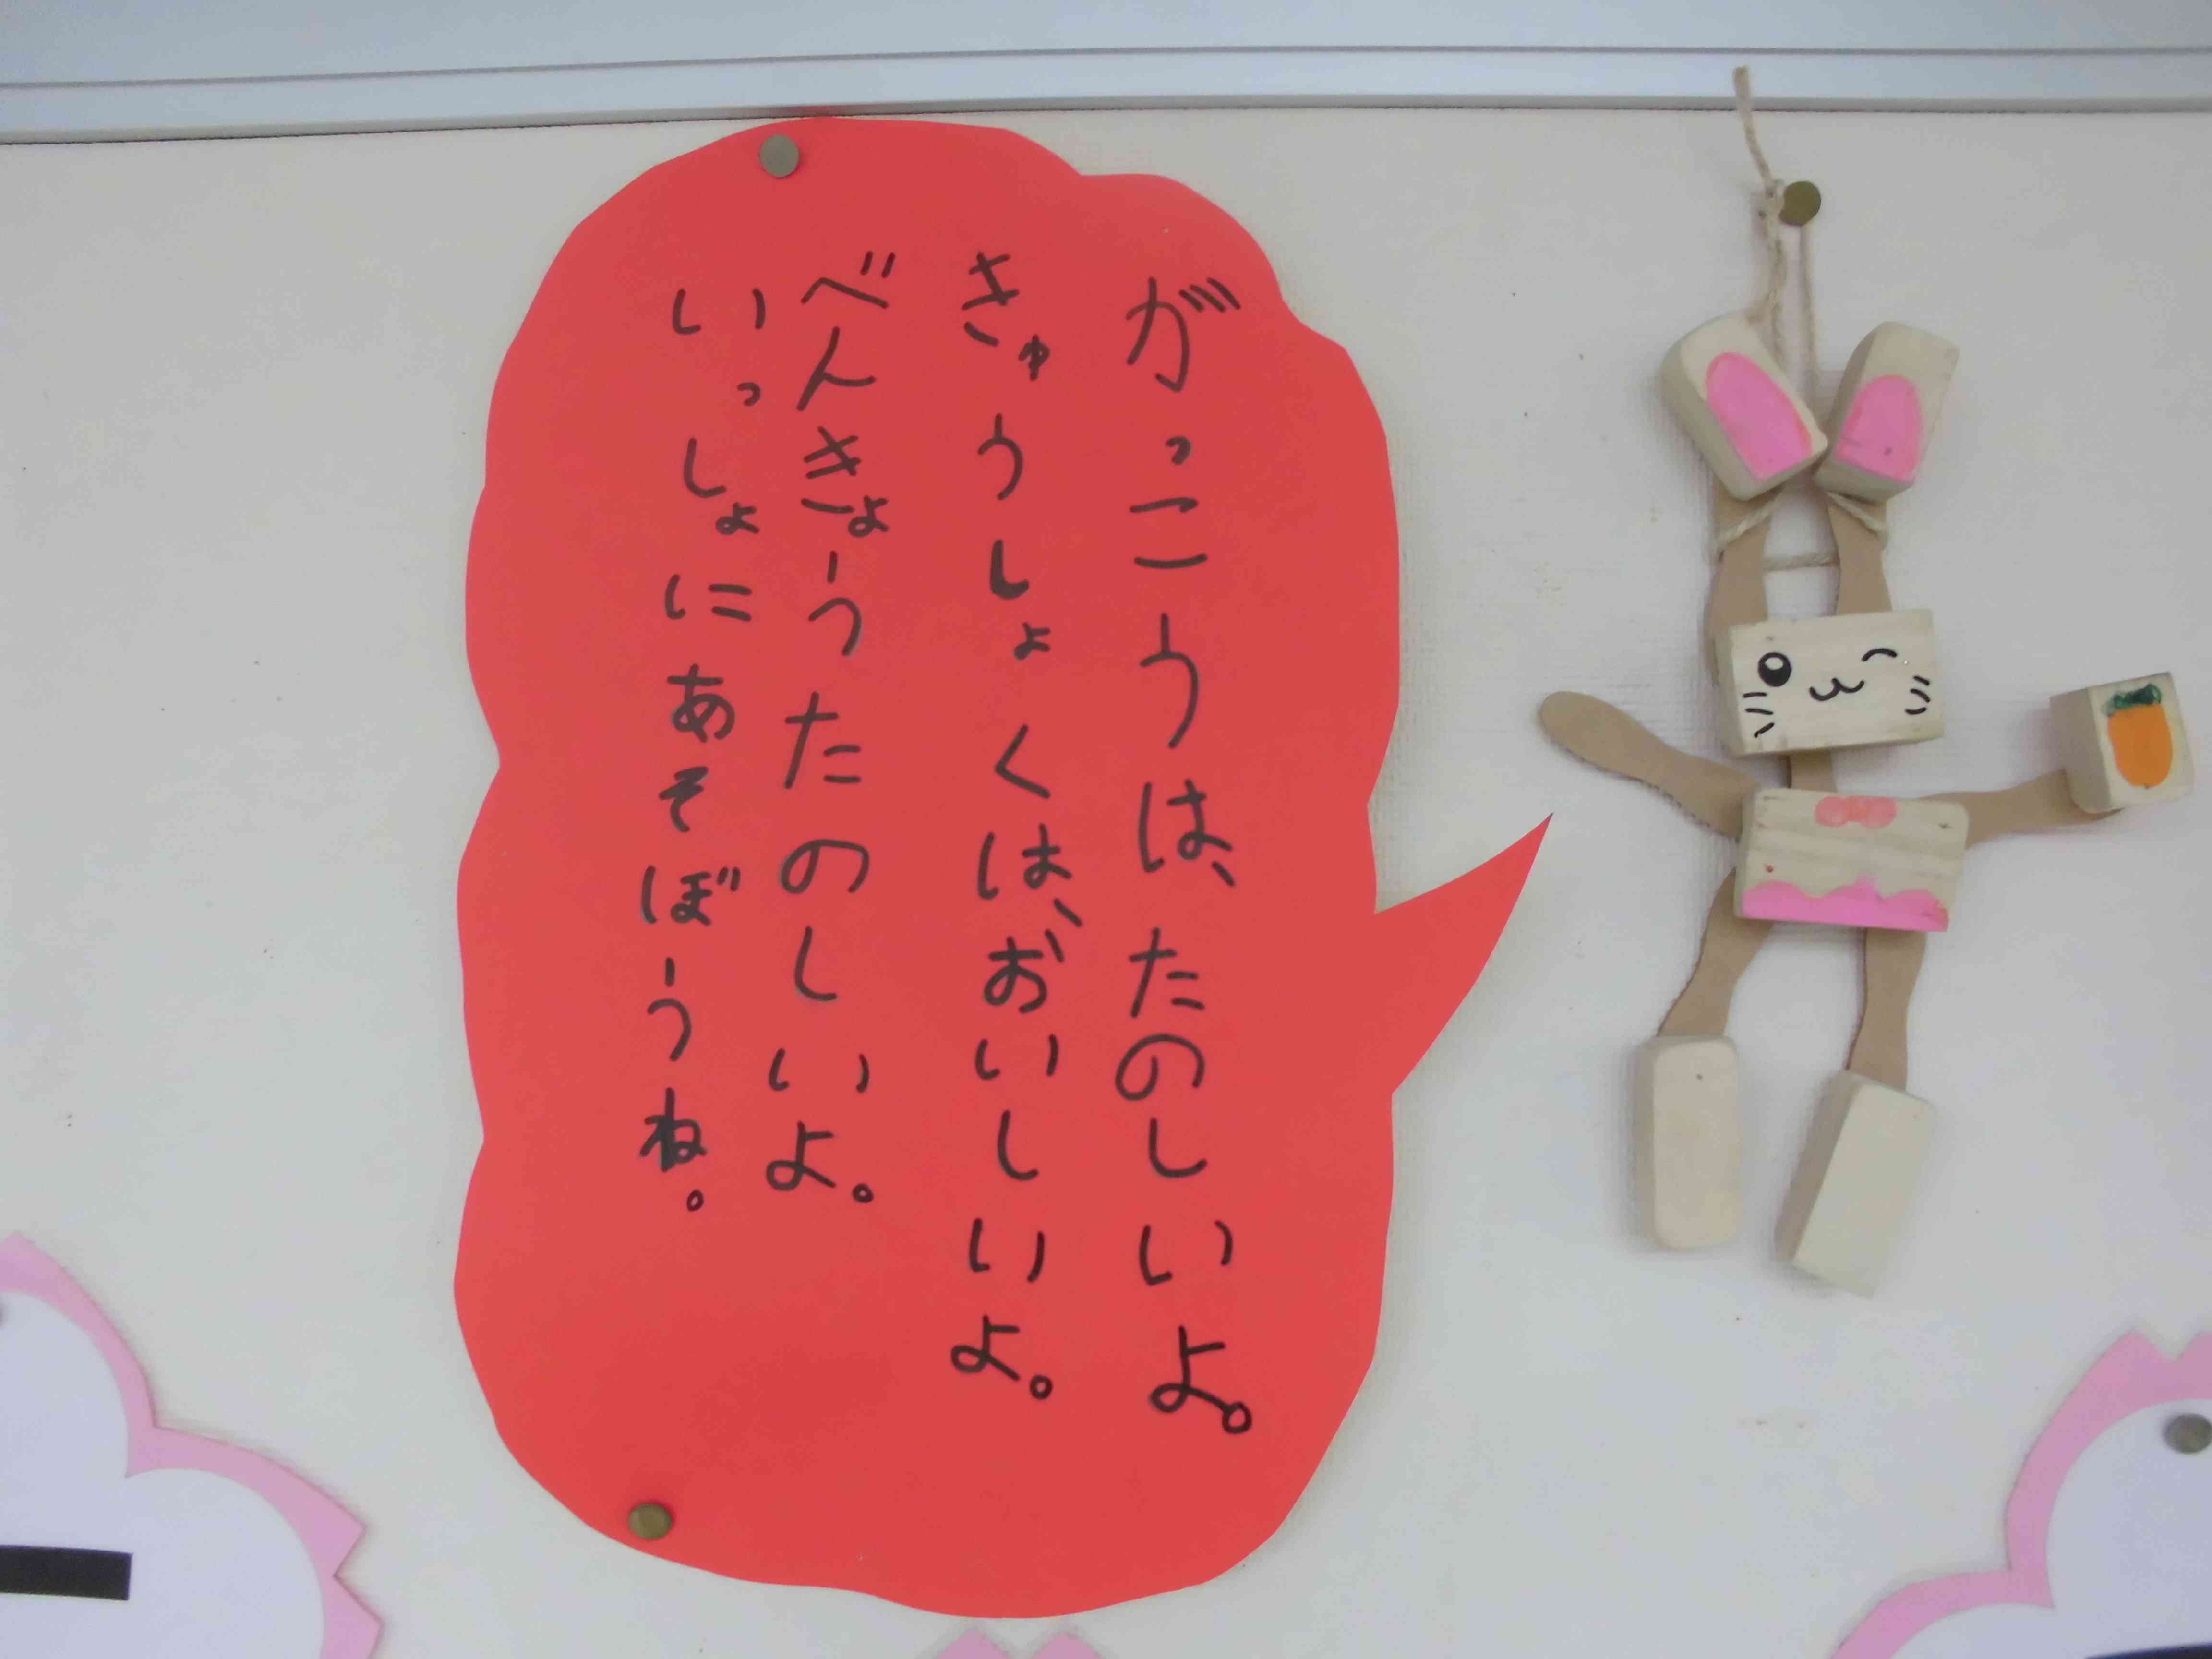 がっこうは、たのしいよ。
きゅうしょくは、おいしいよ。
べんきょうたのしいよ。
いっしょにあそぼうね。